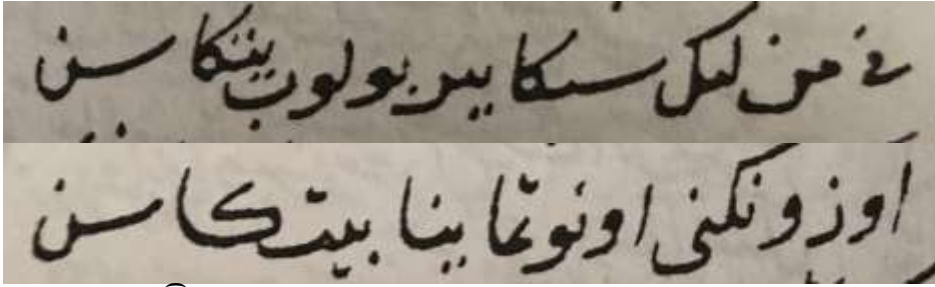 في من لیکل سنکا بیر بولوب یتنکا سن
اوزونکنی اونوتما ینا بیت کا سن